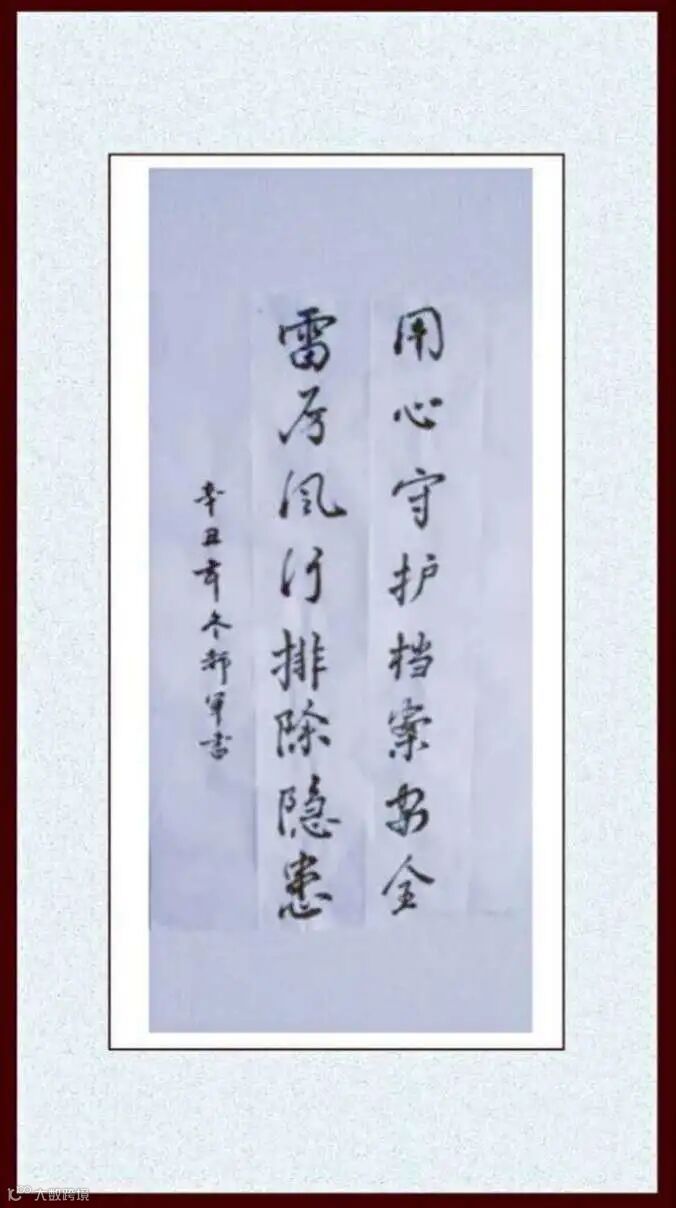 用心守护档案安全
雷厉风行排除隐患
辛丑年冬郝军书
大数跨境